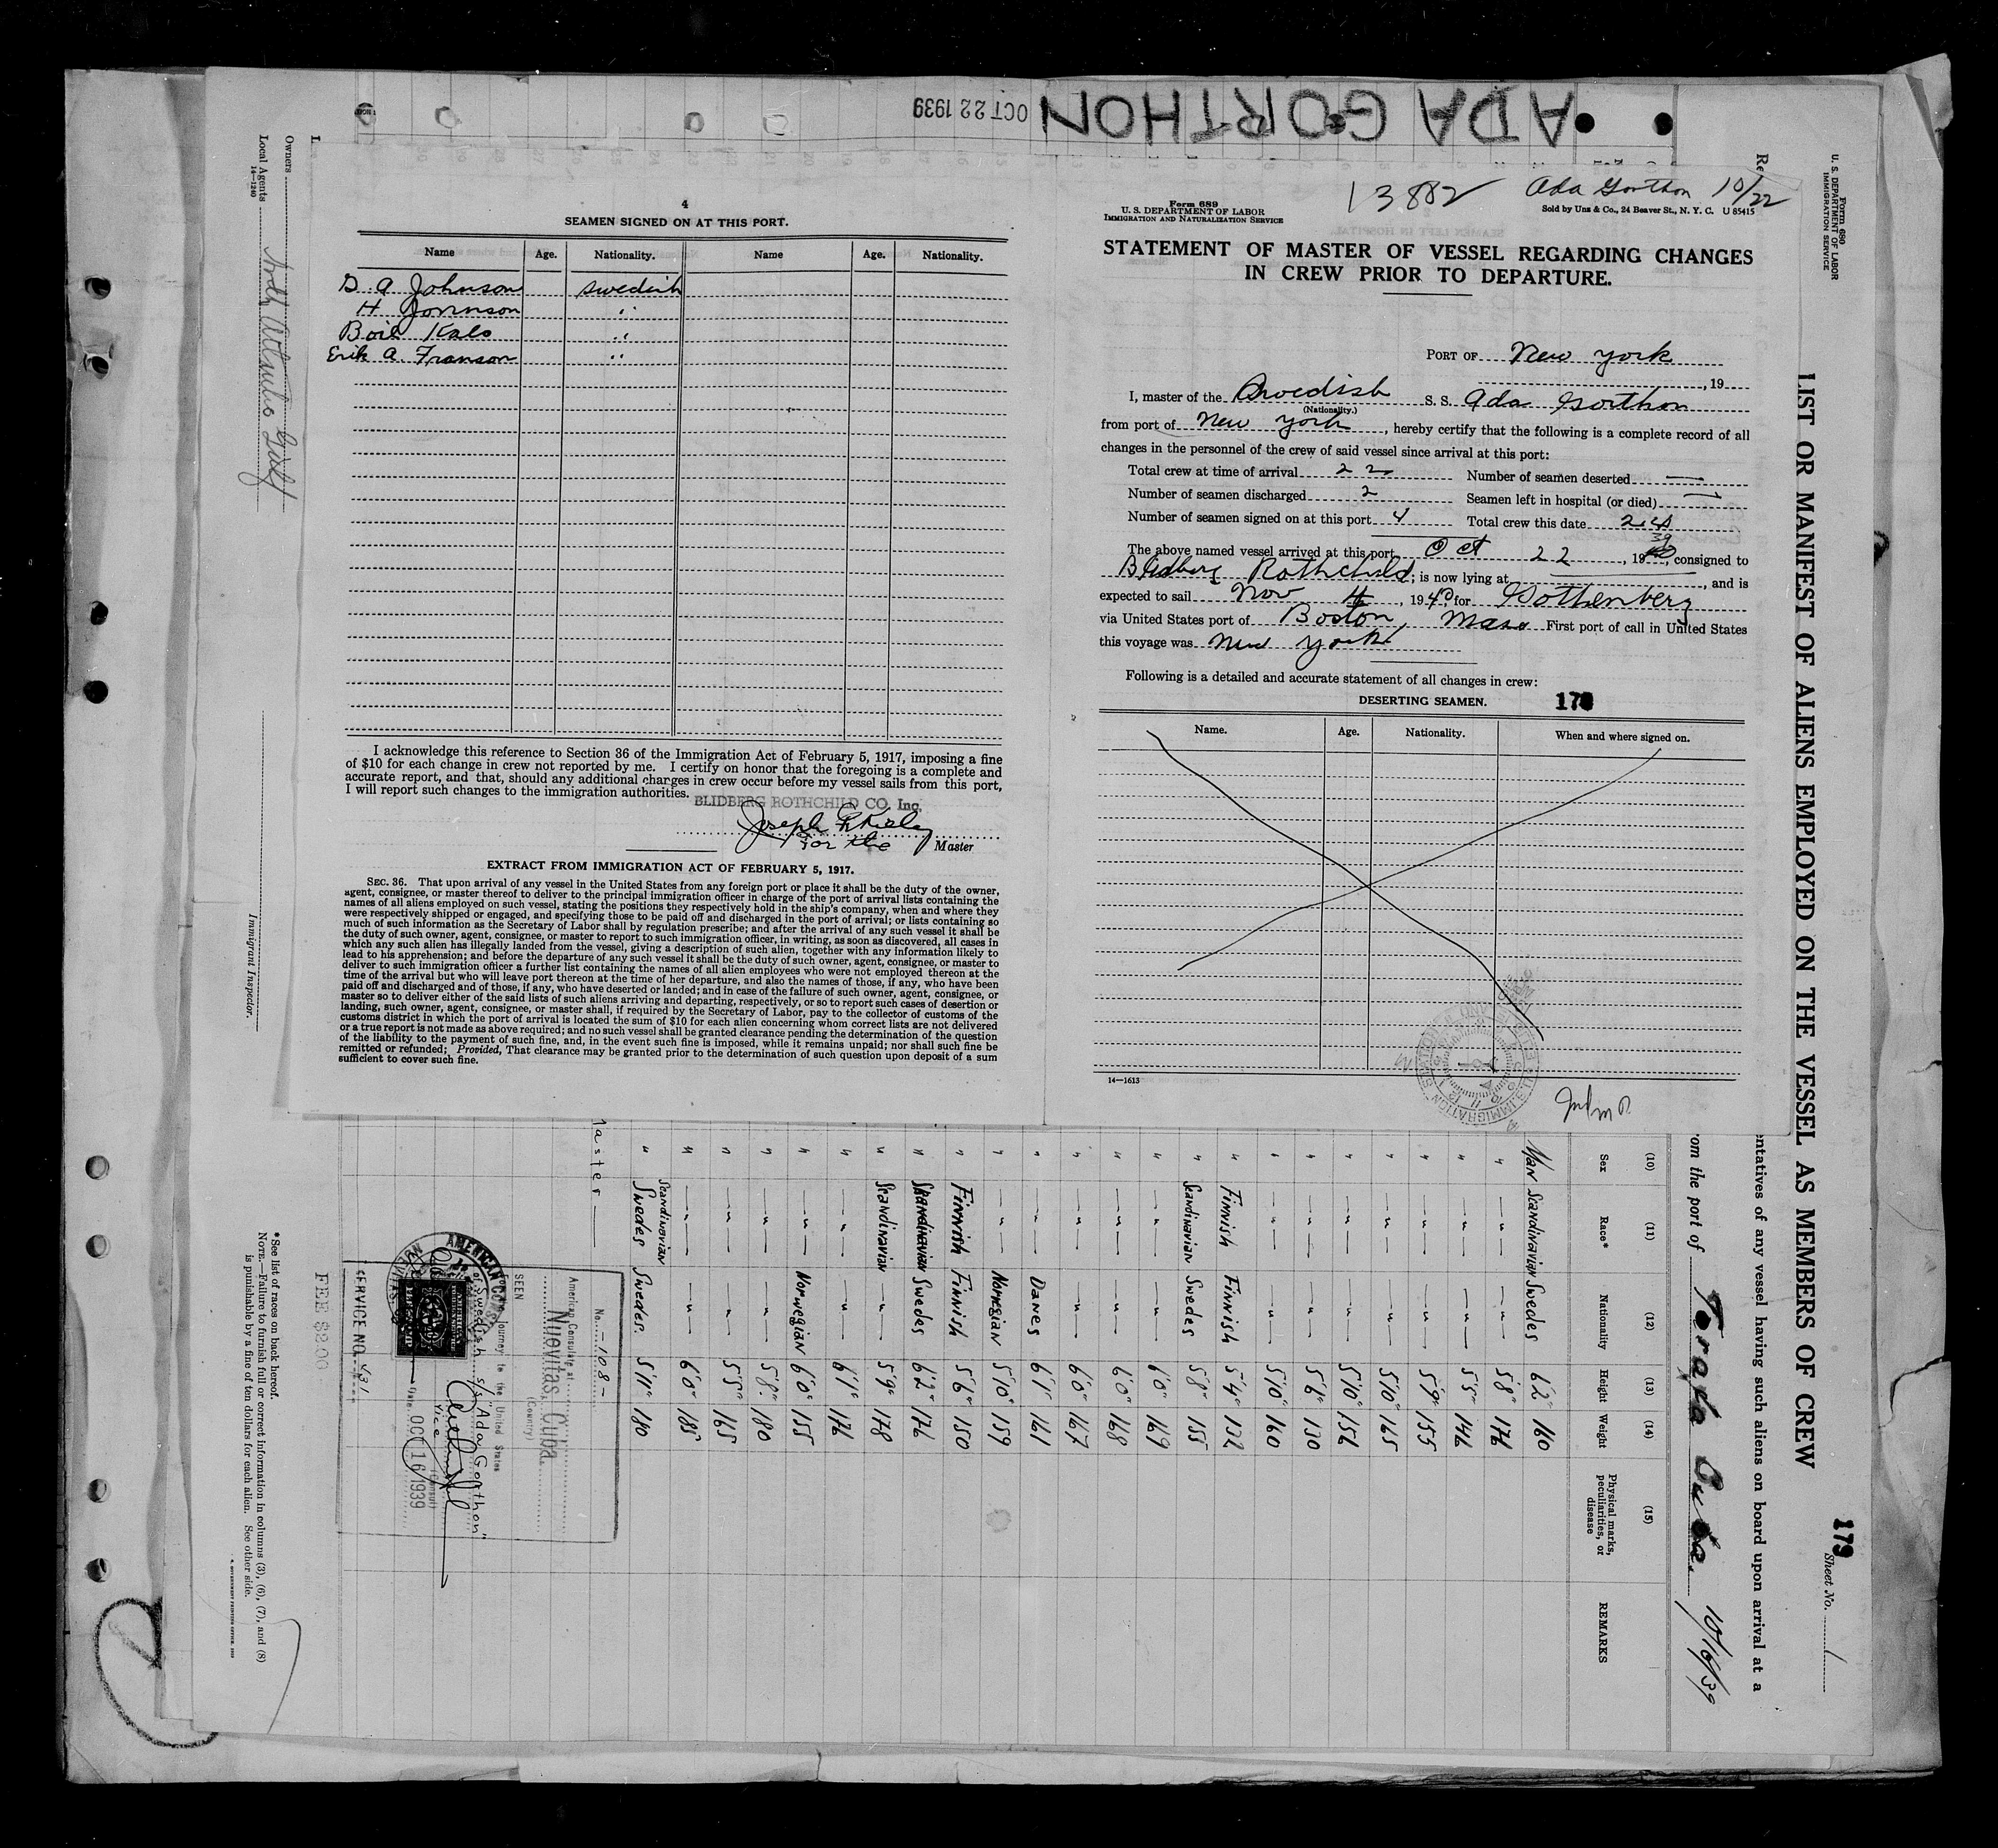 ADA GORTHON
OCT 22 1939
4
SEAMEN SIGNED ON AT THIS PORT.
Name Age. Nationality. Name Age. Nationality.
G. A Johnson swedish
H Johnson "
Boil Kals "
Erik A. Franson "
I acknowledge this reference to Section 36 of the Immigration Act of February 5, 1917, imposing a fine
of $10 for each change in crew not reported by me. I certify on honor that the foregoing is a complete and
accurate report, and that, should any additional changes in crew occur before my vessel sails from this port,
I will report such changes to the immigration authorities.
BLIDBERG ROTHCHILD CO. Inc.
Joseph
For the Master
EXTRACT FROM IMMIGRATION ACT OF FEBRUARY 5, 1917.
SEC. 36. That upon arrival of any vessel in the United States from any foreign port or place it shall be the duty of the owner,
agent, consignee, or master thereof to deliver to the principal immigration officer in charge of the port of arrival lists containing the
names of all aliens employed on such vessel, stating the positions they respectively hold in the ship's company, when and where they
were respectively shipped or engaged, and specifying those to be paid off and discharged in the port of arrival; or lists containing so
much of such information as the Secretary of Labor shall by regulation prescribe; and after the arrival of any such vessel it shall be
the duty of such owner, agent, consignee, or master to report to such immigration officer, in writing, as soon as discovered, all cases in
which any such alien has illegally landed from the vessel, giving a description of such alien, together with any information likely to
lead to his apprehension; and before the departure of any such vessel it shall be the duty of such owner, agent, consignee, or master to
deliver to such immigration officer a further list containing the names of all alien employees who were not employed thereon at the
time of the arrival but who will leave port thereon at the time of her departure, and also the names of those, if any, who have been
paid off and discharged and of those, if any, who have deserted or landed; and in case of the failure of such owner, agent, consignee, or
master so to deliver either of the said lists of such aliens arriving and departing, respectively, or so to report such cases of desertion or
landing, such owner, agent, consignee, or master shall, if required by the Secretary of Labor, pay to the collector of customs of the
customs district in which the port of arrival is located the sum of $10 for each alien concerning whom correct lists are not delivered
or a true report is not made as above required; and no such vessel shall be granted clearance pending the determination of the question
of the liability to the payment of such fine, and, in the event such fine is imposed, while it remains unpaid; nor shall such fine be
remitted or refunded; Provided, That clearance may be granted prior to the determination of such question upon deposit of a sum
sufficient to cover such fine.
13882 Ada Gorthon 10/22
Form 689
U. S. DEPARTMENT OF LABOR
IMMIGRATION AND NATURALIZATION SERVICE
Sold by Unz & Co., 24 Beaver St., N. Y. C. U 85415
STATEMENT OF MASTER OF VESSEL REGARDING CHANGES
IN CREW PRIOR TO DEPARTURE.
PORT OF New York
, 19
I, master of the Swedish S. S. Ada Gorthon
(Nationality.)
from port of New York, hereby certify that the following is a complete record of all
changes in the personnel of the crew of said vessel since arrival at this port:
Total crew at time of arrival 22 Number of seamen deserted —
Number of seamen discharged 2 Seamen left in hospital (or died) —
Number of seamen signed on at this port 4 Total crew this date 24
The above named vessel arrived at this port Oct 22, 19 , consigned to
Blidberg Rothchild; is now lying at , and is
expected to sail Nov 4, 1940, for Gothenberg
via United States port of Boston, Mass First port of call in United States
this voyage was New York
Following is a detailed and accurate statement of all changes in crew:
DESERTING SEAMEN. 178
Name. Age. Nationality. When and where signed on.
14—1613
Form 680
U. S. DEPARTMENT OF LABOR
IMMIGRATION SERVICE
LIST OR MANIFEST OF ALIENS EMPLOYED ON THE VESSEL AS MEMBERS OF CREW
179
Sheet No. 1
entatives of any vessel having such aliens on board upon arrival at a
rom the port of Tarafa Cuba. 10/16/39
(10) (11) (12) (13) (14) (15)
Sex Race* Nationality Height Weight Physical marks, peculiarities, or disease REMARKS
Man Scandinavian Swedes 6'2" 160
" —"— —"— 5'8" 176
" —"— —"— 5'5" 146
" —"— —"— 5'9" 155
" —"— —"— 5'10" 165
" —"— —"— 5'10" 156
" —"— —"— 5'6" 130
" —"— —"— 5'10" 160
" Finnish Finnish 5'4" 132
" Scandinavian Swedes 5'8" 155
" —"— —"— 6'0" 169
" —"— —"— 6'0" 168
" —"— —"— 6'0" 167
" —"— Danes 6'1" 161
" —"— Norwegian 5'10" 159
" Finnish Finnish 5'6" 150
" Skandinavian Swedes 6'2" 176
" Scandinavian —"— 5'9" 178
" —"— —"— 6'1" 176
" —"— Norwegian 6'0" 155
" —"— —"— 5'8" 180
" —"— —"— 5'5" 165
" —"— —"— 6'0" 185
" Scandinavian Swedes Swedes. 5'11" 180
Master
No. -108-
American Consulate at
Nuevitas, Cuba.
(Country)
SEEN
Journey to the United States
of Swedish s/s "Ada Gorthon"
Vice Consul
Date: OCT 16 1939
AMERICAN CONSULATE
SERVICE NO. 431
FEE $2.00
*See list of races on back hereof.
NOTE.—Failure to furnish full or correct information in columns (3), (6), (7), and (8)
is punishable by a fine of ten dollars for each alien. See other side.
Immigrant Inspector.
Owners
Local Agents North Atlantic Gulf
14—1240